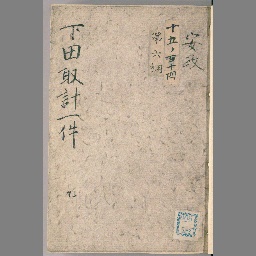 安政
十五ノ百十四
第六冊
下田取計一件